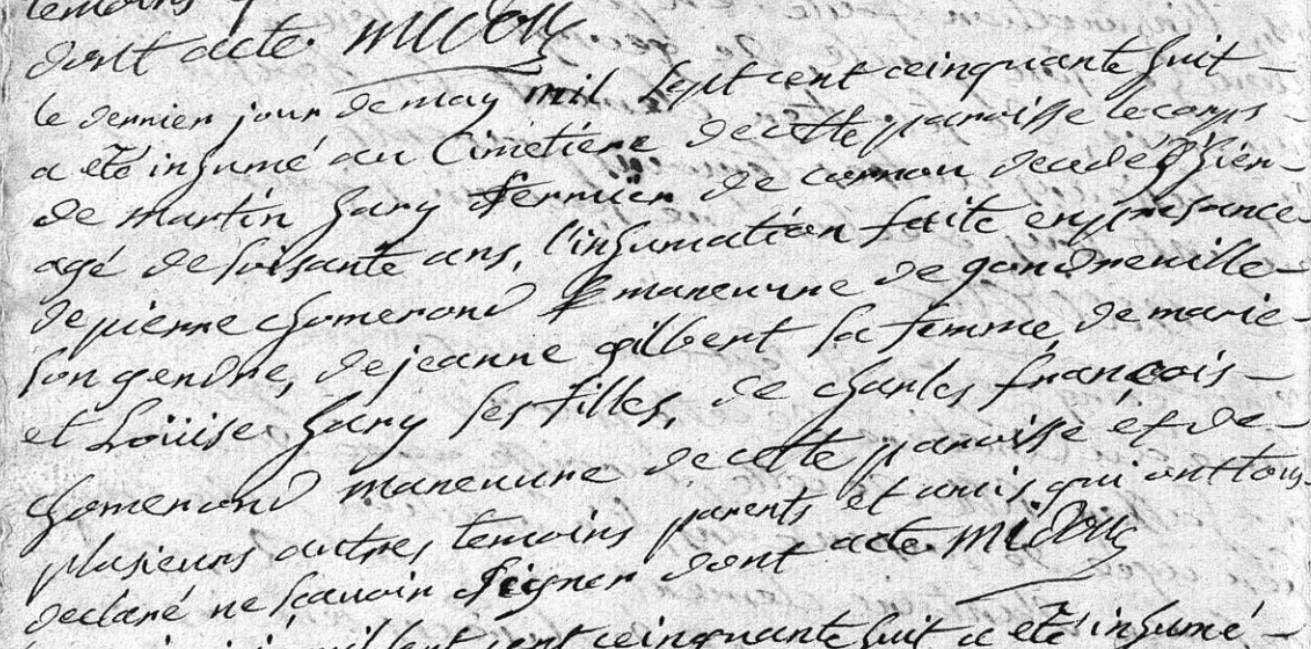 temoins
dont acte. micony
le dernier jour de may mil sept cent ceinquante huit
a eté inhumé au Cimetiere de cette paroisse le corps
de martin hary fermier de cornou decedé d'hier
agé de soisante ans, l'inhumation faite en presance
de pierre chomerond maneuvre de gondreville
son gendre, de jeanne gilbert sa femme, de marie
et Loüise hary ses filles, de charles francois
chomerond maneuvre de cette paroisse et de
plusieurs autres temoins parents et amis qui ont tous
declaré ne scavoir signer dont acte micony
cent ceinquante huit a eté inhumé